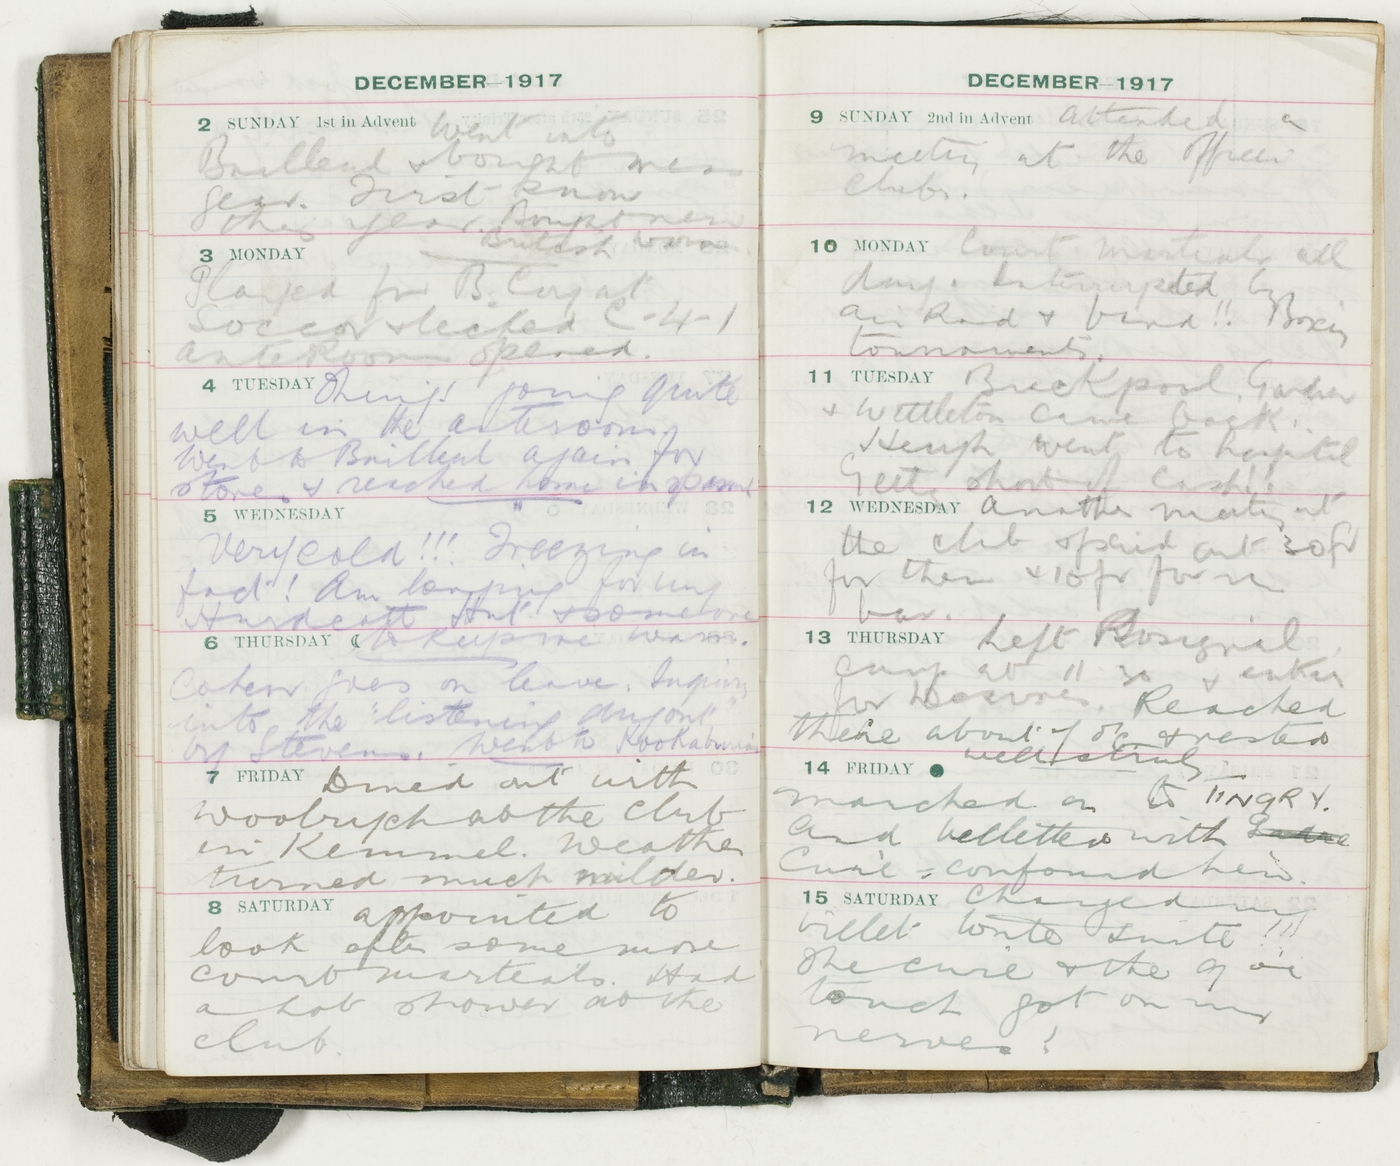 DECEMBER—1917
2 SUNDAY 1st in Advent Went into
Bailleul & bought mess
gear. First snow
this year. Bought new
British warm.
3 MONDAY
Played for B. Coy at
Soccer & licked C-4-1
Anteroom opened.
4 TUESDAY Things going quite
well in the anteroom,
went to Bailleul again for
stores & reached home
5 WEDNESDAY
Very cold!!! Freezing in
fact! Am longing for my
Hurdcott hut & someone
to keep me warm.
6 THURSDAY
Cohen goes on leave. Inquiry
into the "listening dugout"
by Stevens. Went to Kookaburras
7 FRIDAY Dined out with
at the Club
in Kemmel. Weather
turned much milder.
8 SATURDAY appointed to
look after some more
court martials. Had
a hot shower at the
club.
DECEMBER—1917
9 SUNDAY 2nd in Advent Attended a
meeting at the officers
club.
10 MONDAY Court martials all
day. Interrupted by
air Raid & band!! Boxing
tournaments.
11 TUESDAY Brackpool, Gardner
& Wittleton came back.
Heugh went to hospital
Getting short of cash!!
12 WEDNESDAY Another meeting at
the club & paid out 30fr
for them & 10fr for
bar.
13 THURSDAY Left
camp at 11 30 &
for Desvres. Reached
there about 7 o'c & rested
14 FRIDAY
marched on to LINGRY.
and billetted with
Curé - confound him.
15 SATURDAY Changed my
billet toute suite!!!
The curé & the
touch got on my
nerves!